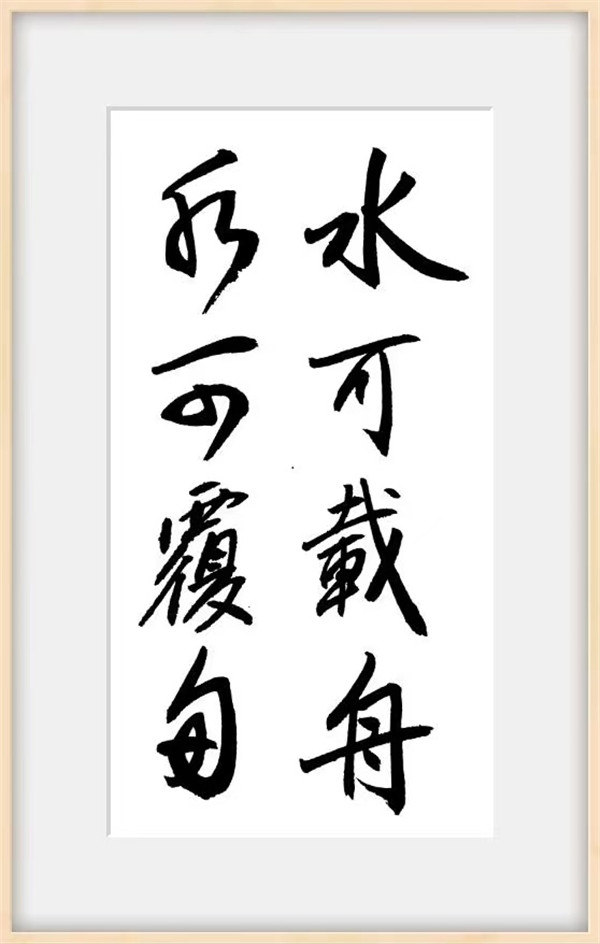 水可載舟
水可覆舟